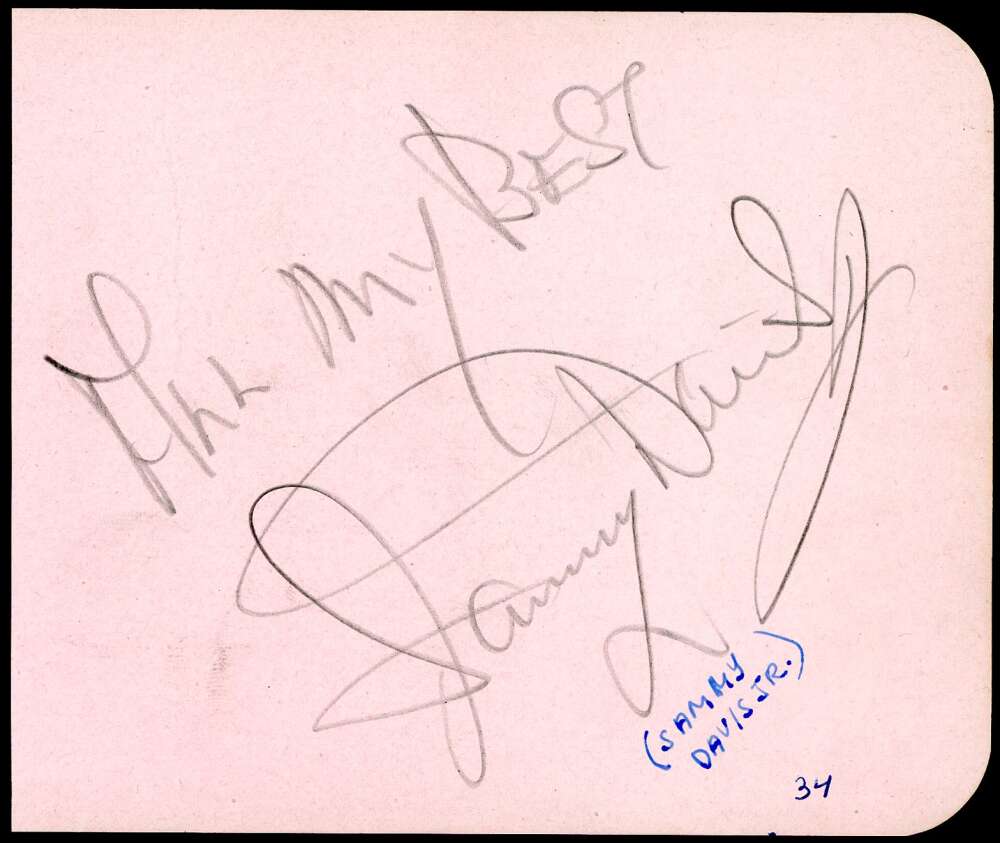 ALL MY BEST
Sammy Davis Jr
(SAMMY
DAVIS JR.)
34